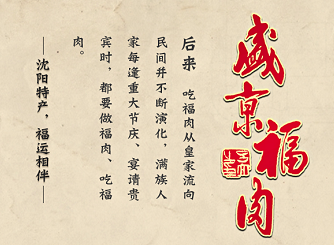 盛京福肉
后来 吃福肉从皇家流向
民间并不断演化，满族人
家每逢重大节庆、宴请贵
宾时，都要做福肉、吃福
肉。
——沈阳特产，福运相伴——